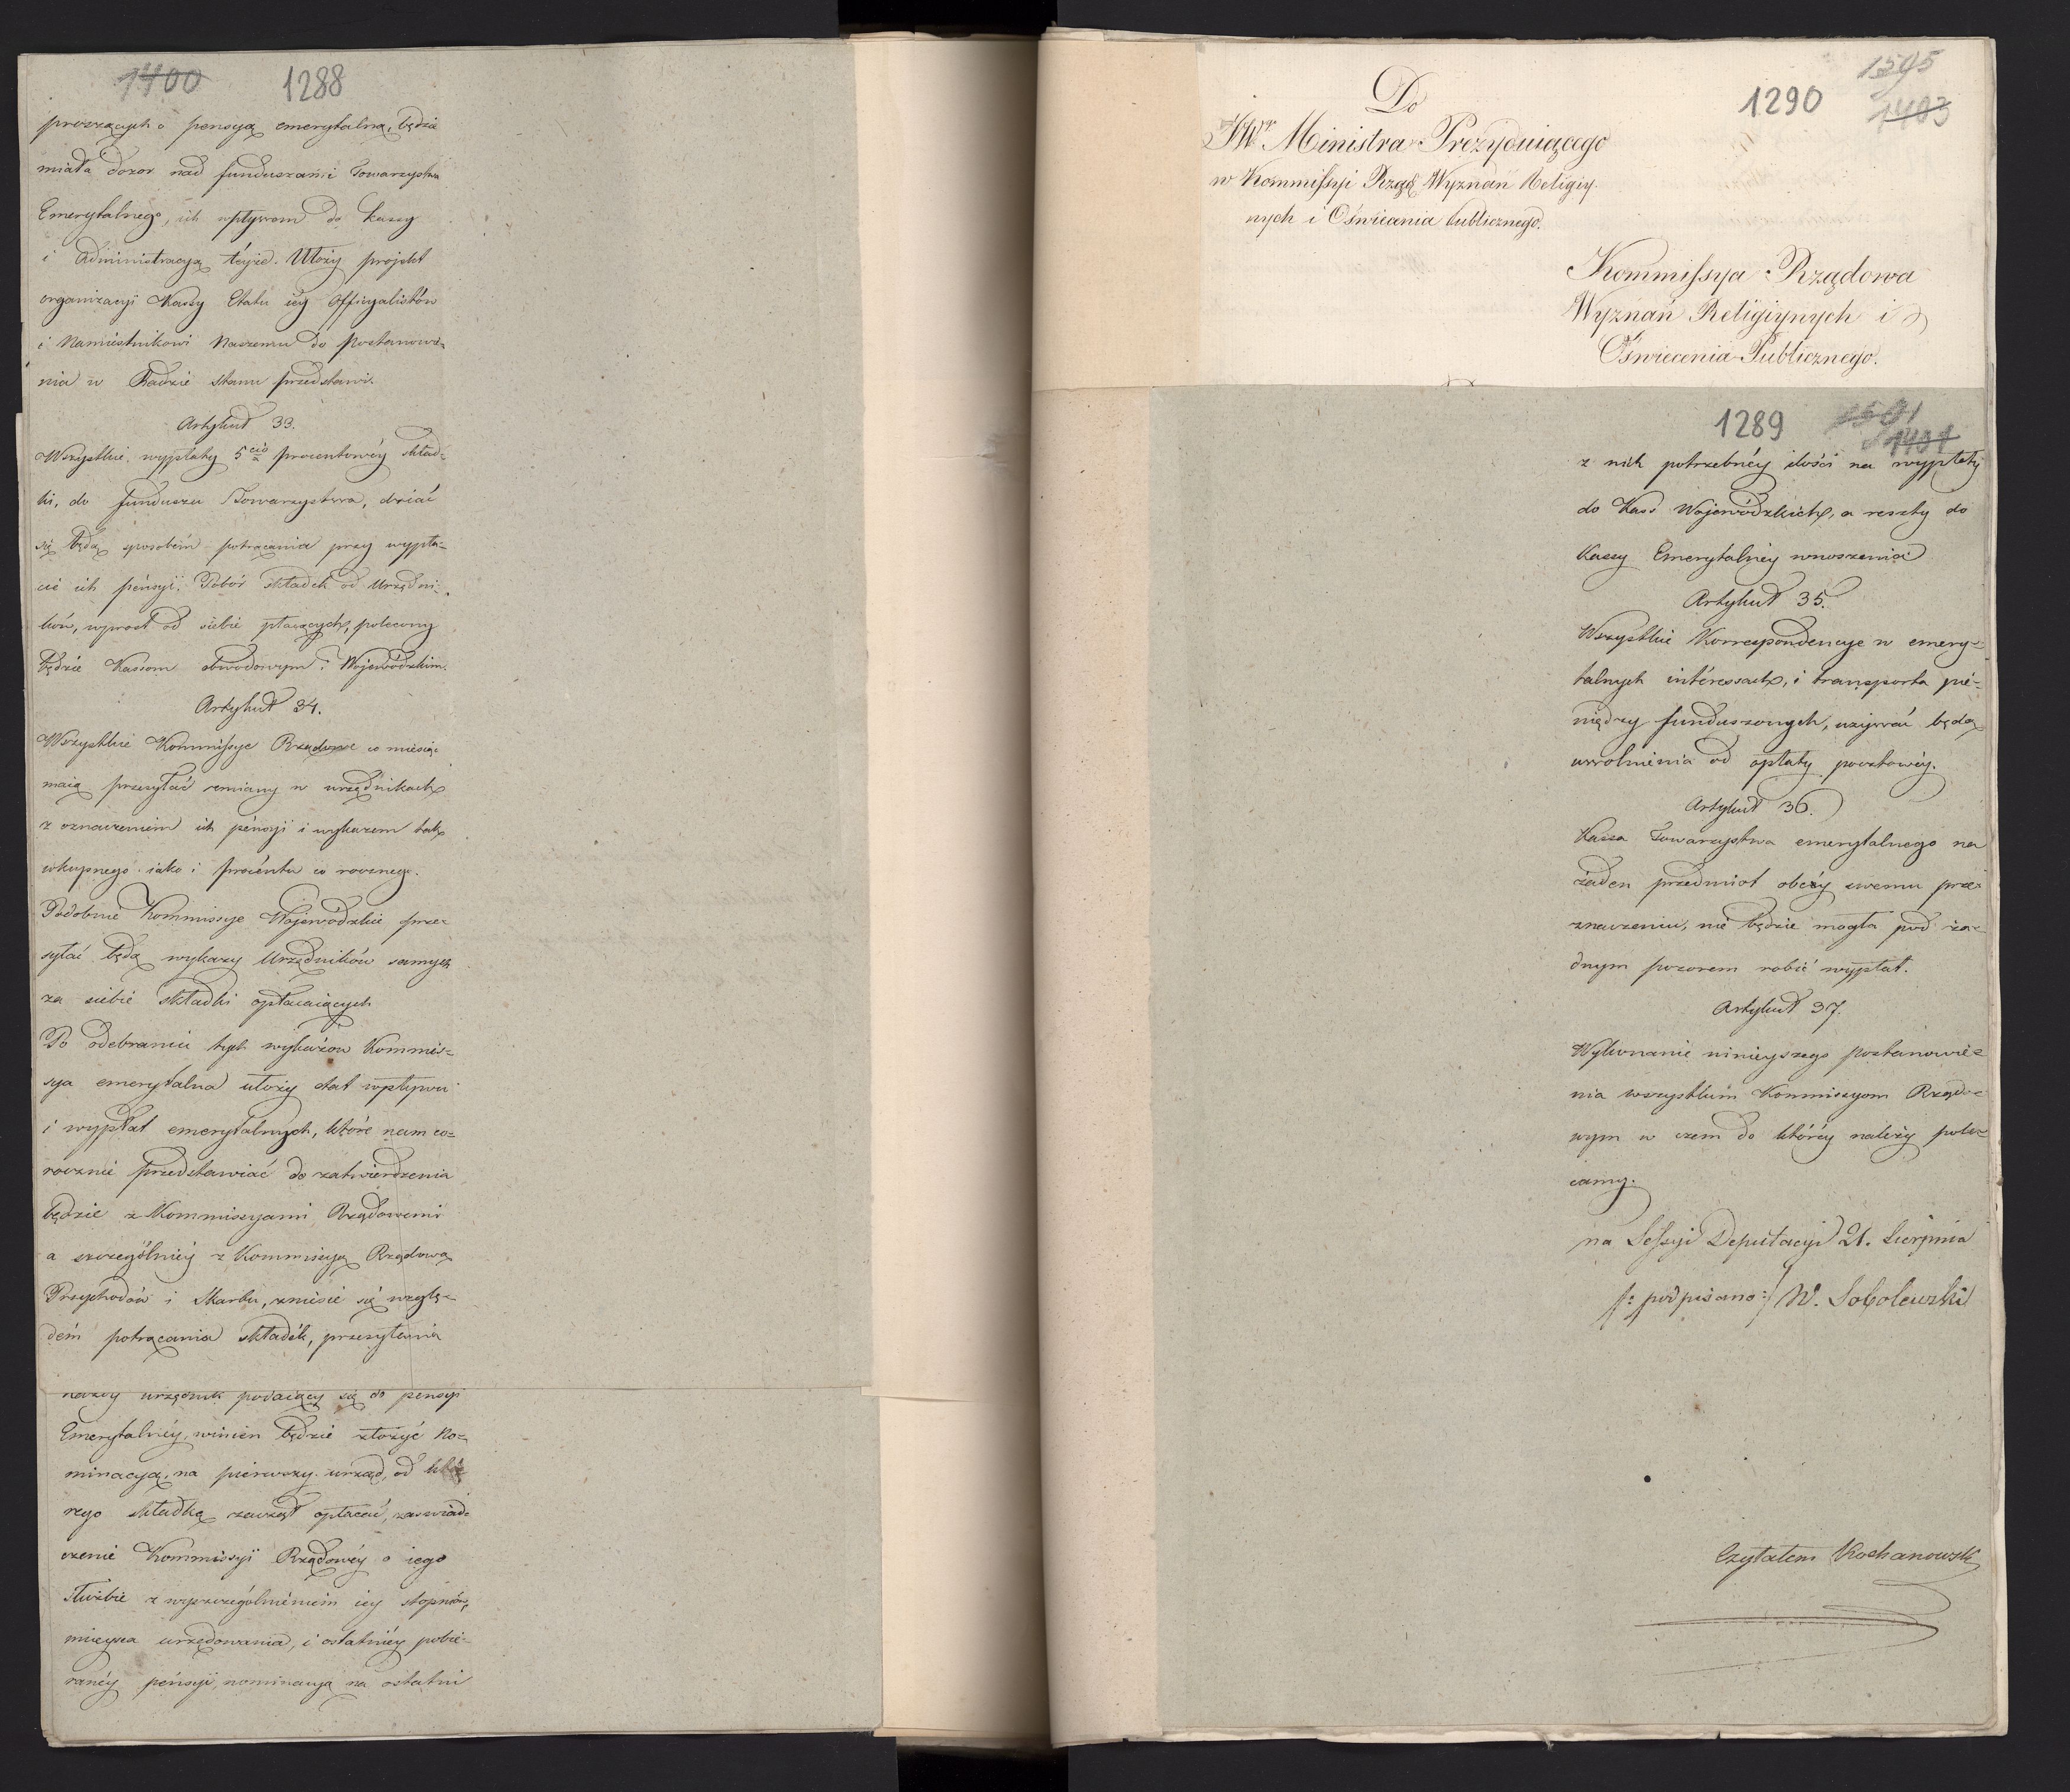 1400 1288
proszących o pensyą emerytalną, będzie
miała dozor nad funduszami Towarzystwa
Emerytalnego, ich wpływom do kassy
i administracyą téyże. Ułoży projekt
organizacyi Kassy Etatu iéy Officyalistów
i Namiestnikowi Naszemu do postanowie-
nia w Radzie Stanu przedstawi.
Artykuł 33.
Wszystkie wypłaty 5cio procentowéy skład-
ki, do funduszu Towarzystwa, dziać
się będą sposobém potrącania przy wypła-
cie ich pénsyi. Pobór składek od Urzędni-
ków, wprost od siebie płacących, polecony
będzie Kassom obwodowym i Wojewódzkim.
Artykuł 34.
Wszystkie Kommissye Rządowe co miesiąc
maią przesyłać zmiany w urzędnikach
z oznaczeniem ich pénsyi i wykazem tak
wkupnego iako i procéntu co rocznego.
Podobnie Kommissye Wojewódzkie prze-
syłać będą wykazy Urzędników samych
za siebie składki opłacaiących
Po odebraniu tych wykazow Kommis-
sya emerytalna ułoży etat wpływu
i wypłat emerytalnych, które nam co-
rocznie przedstawiać do zatwierdzenia
będzie z Kommissyami Rządowemi
a szczególniéy z Kommissyą Rządową
Przychodów i Skarbu, zniesie się wzglę-
dém potrącania składék, przesyłania
każdy urzędnik podaiący się do pensyi
Emerytalnéy, winién będzie złożyć No-
minacyą, na pierwszy urząd, od któ-
rego składkę zaczął opłacać, zaswiad-
czenie Kommissyi Rządowéy o iego
służbie z wyszczególnieniem iéy stopniów,
mieysca urzędowania, i ostatniéy pobie-
ranéy pénsyi, nominacyą na ostatni
1290 1403
Do
JWgo Ministra Prezyduiącego
w Kommissyi Rządo Wyznań Religiy-
nych i Oświecenia Publicznego.
Kommissya Rządowa
Wyznań Religiynych i
Oświecenia Publicznego.
1289 1401
z nich potrzebnéy ilości na wypłaty
do Kass Wojewódzkich, a reszty do
Kassy Emerytalnéy wnoszenia
Artykuł 35.
Wszystkie Korrespondencye w emery-
talnych intéressach, i transporta pie-
niędzy funduszowych, używać będą
uwolnienia od opłaty pocztowéy.
Artykuł 36.
Kassa Towarzystwa emerytalnego na
żaden przedmiot obcéy swemu prze-
znaczeniu, nie będzie mogła pod ża-
dnym pozorem robić wypłat.
Artykuł 37.
Wykonanie ninieyszego postanowie-
nia wszystkim Kommissyom Rządo-
wym w czem do któréy należy pole-
camy.
na Sessyi Deputacyi 21. Sierpnia
/: podpisano :/ W. Sobolewski
Czytałem Kochanowski